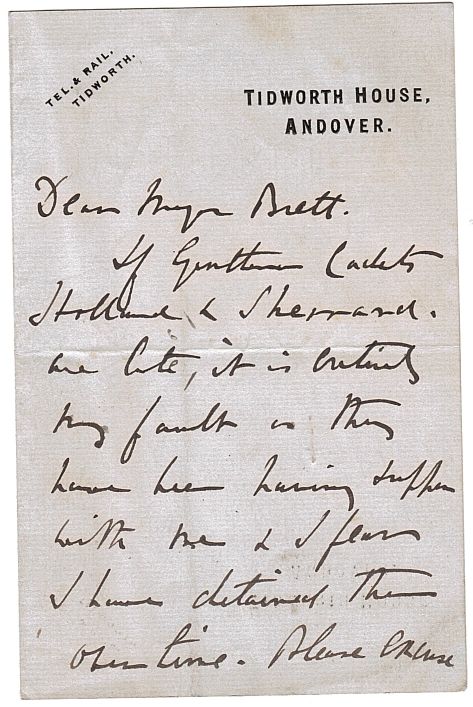 TEL. & RAIL.
TIDWORTH.
TIDWORTH HOUSE,
ANDOVER.
Dear Major Brett.
If Gentlemen Cadets
Holland & Sherrard.
are late, it is entirely
my fault as they
have been having supper
with me & I fear
I have detained them
over time. Please excuse